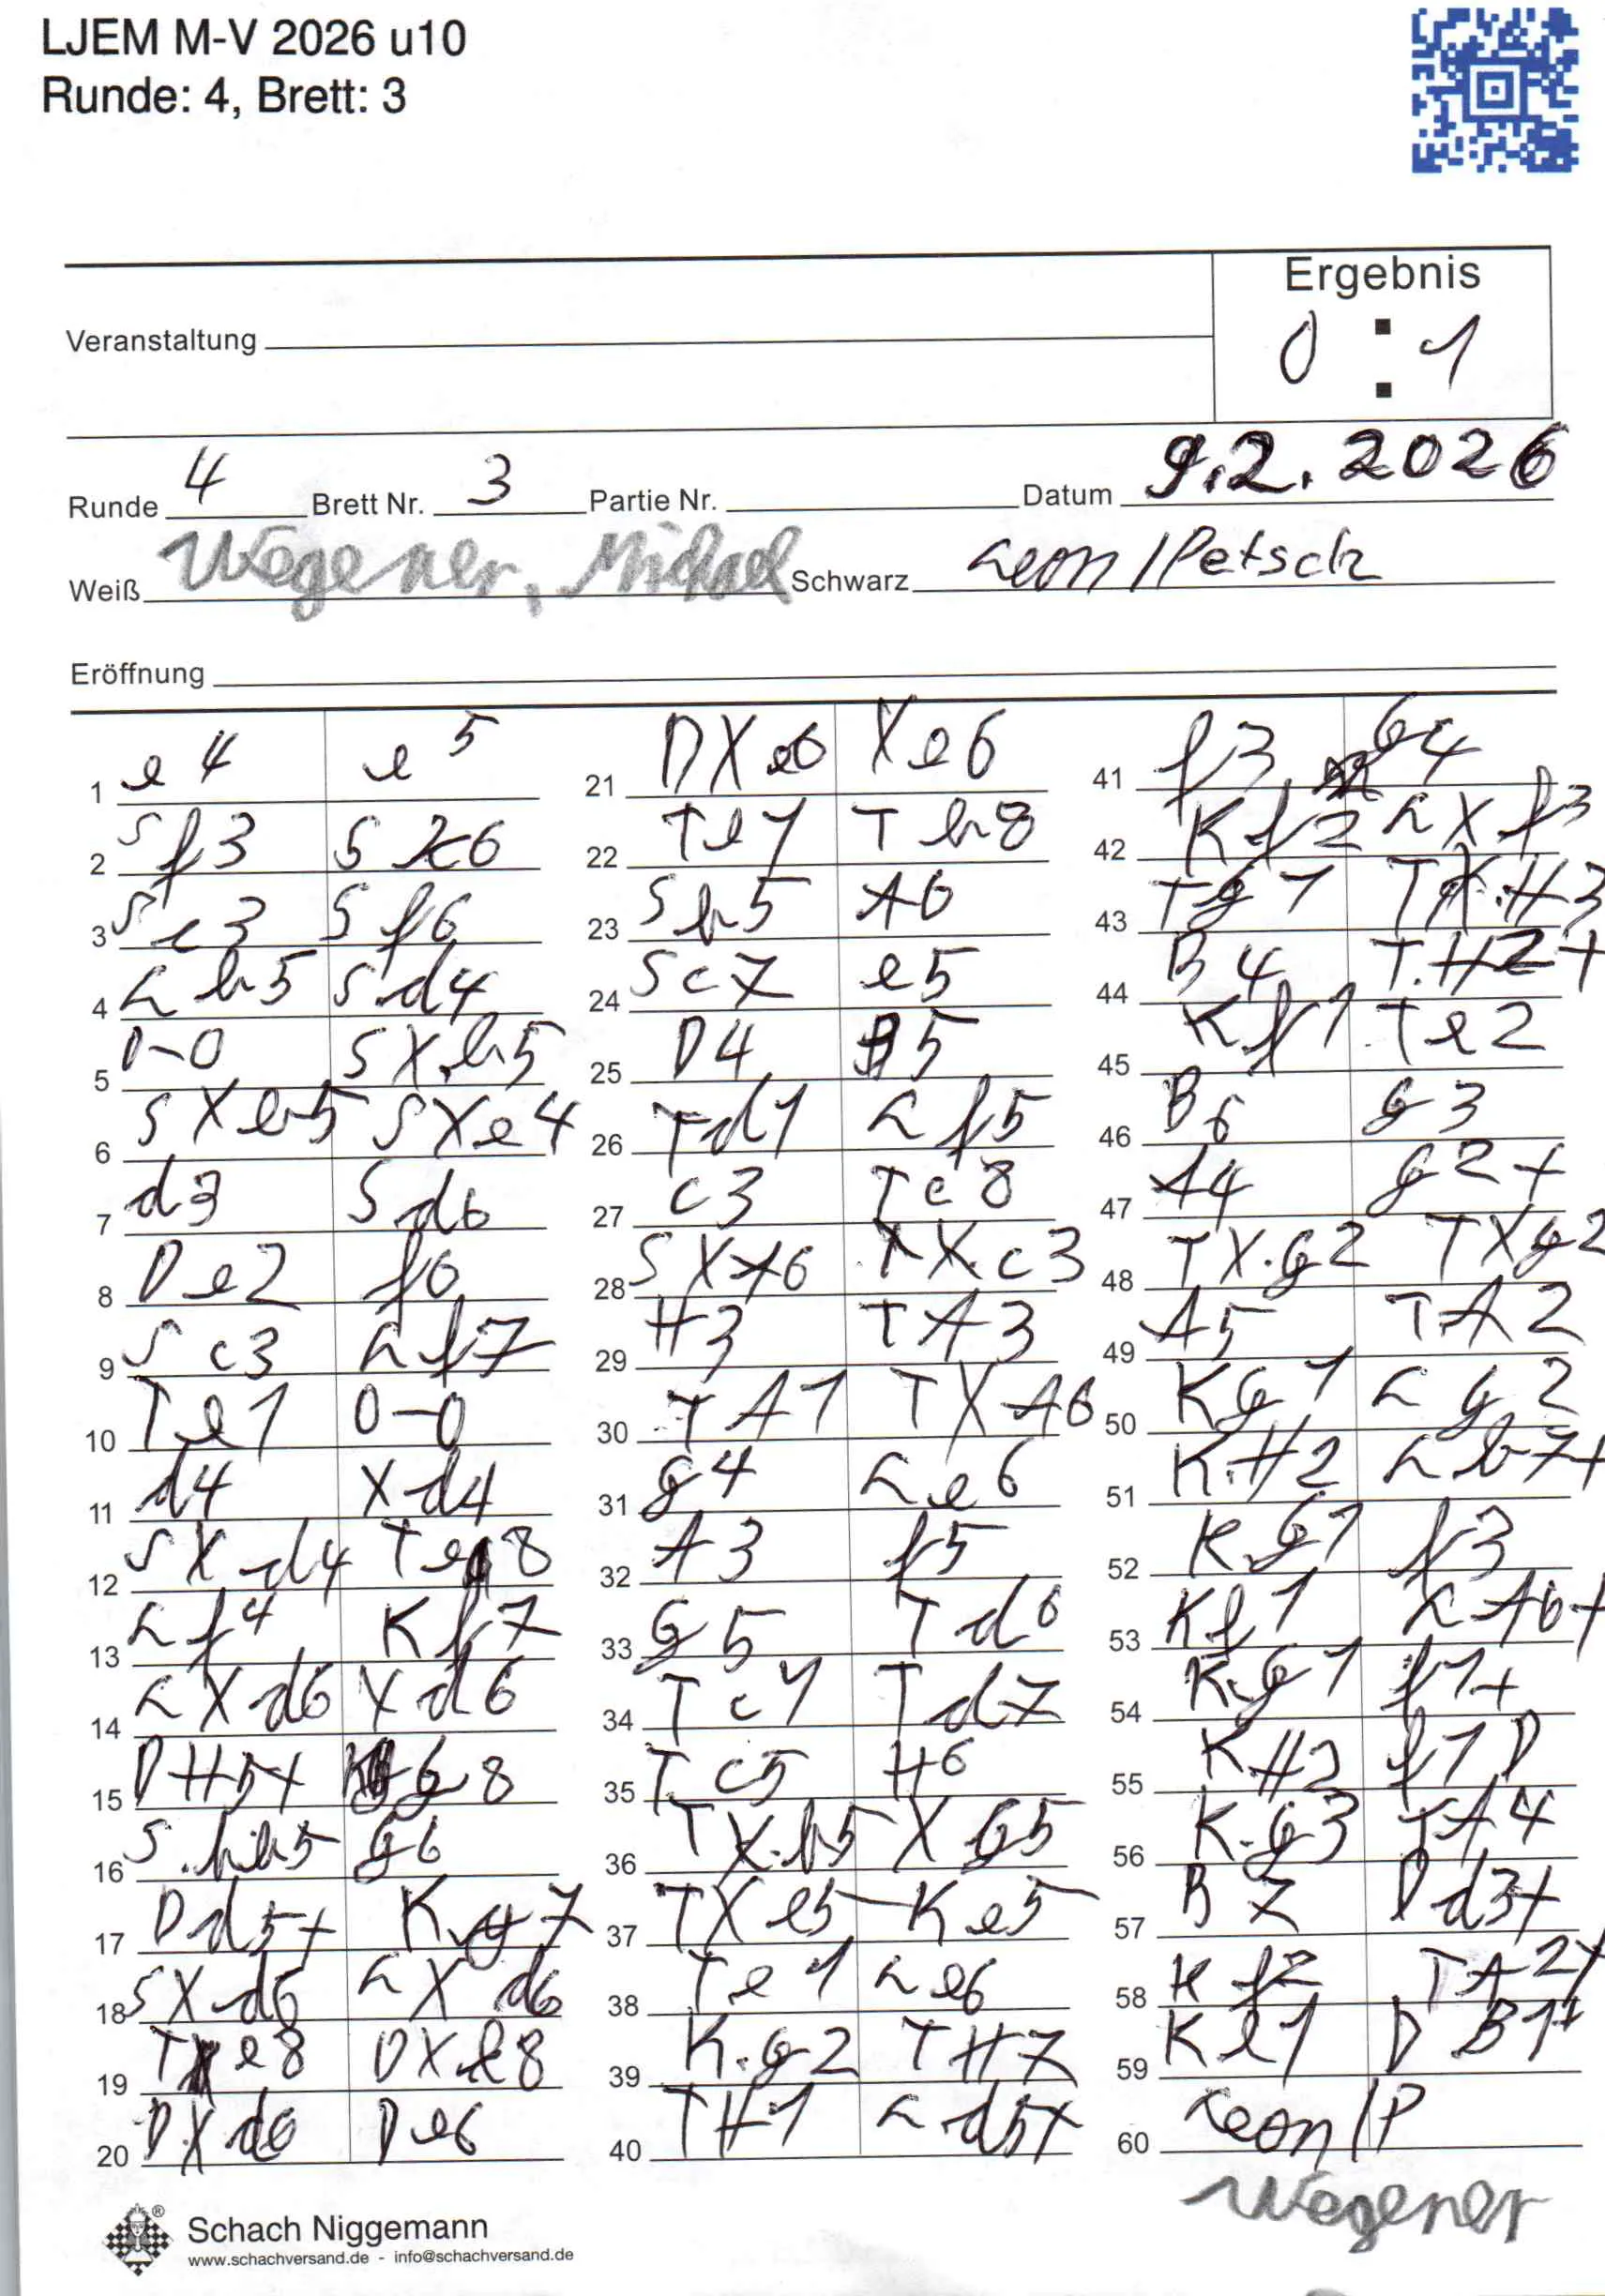 LJEM M-V 2026 u10
Runde: 4, Brett: 3
Ergebnis
Veranstaltung 0 : 1
Runde 4 Brett Nr. 3 Partie Nr. Datum 9.2.2026
Weiß Wegener, Michael Schwarz Leon / Petsch
Eröffnung
1 e4 e5 21 DXe6 Xe6 41 f3 G4
2 Sf3 Sc6 22 Te1 Tb8 42 Kf2 LXf3
3 Sc3 Sf6 23 Sb5 A6 43 Tg1 TX.H3
4 Lb5 Sd4 24 Sc7 e5 44 B4 T.H2+
5 0-0 SX.b5 25 D4 B5 45 Kf1 Te2
6 SXb5 SXe4 26 Td1 Lf5 46 B6 g3
7 d3 Sd6 27 c3 Tc8 47 A4 g2+
8 De2 f6 28 SXA6 TX.c3 48 TX.g2 TXg2
9 Sc3 Lf7 29 H3 TA3 49 A5 T.A2
10 Te1 0-0 30 TA1 TXA6 50 KG1 Lg2
11 d4 Xd4 31 g4 Le6 51 K.H2 Lb7+
12 SXd4 Te8 32 A3 f5 52 K.G1 f3
13 Lf4 Kf7 33 G5 Td6 53 Kf1 LA6+
14 LXd6 Xd6 34 Tc1 Td7 54 K.g1 f1+
15 DH5+ KG8 35 Tc5 H6 55 KH2 f1D
16 S.b5 G6 36 TX.b5 XG5 56 K.g3 TA4
17 Dd5+ Kg7 37 TXe5 Ke5 57 B7 Dd3+
18 SXd6 LXd6 38 Te1 Le6 58 Kf2 TA2+
19 TXe8 DXe8 39 K.g2 TH7 59 Ke1 DB1+
20 DXd6 De6 40 TH1 Ld5+ 60 Leon/P
Wegener
Schach Niggemann
www.schachversand.de - info@schachversand.de